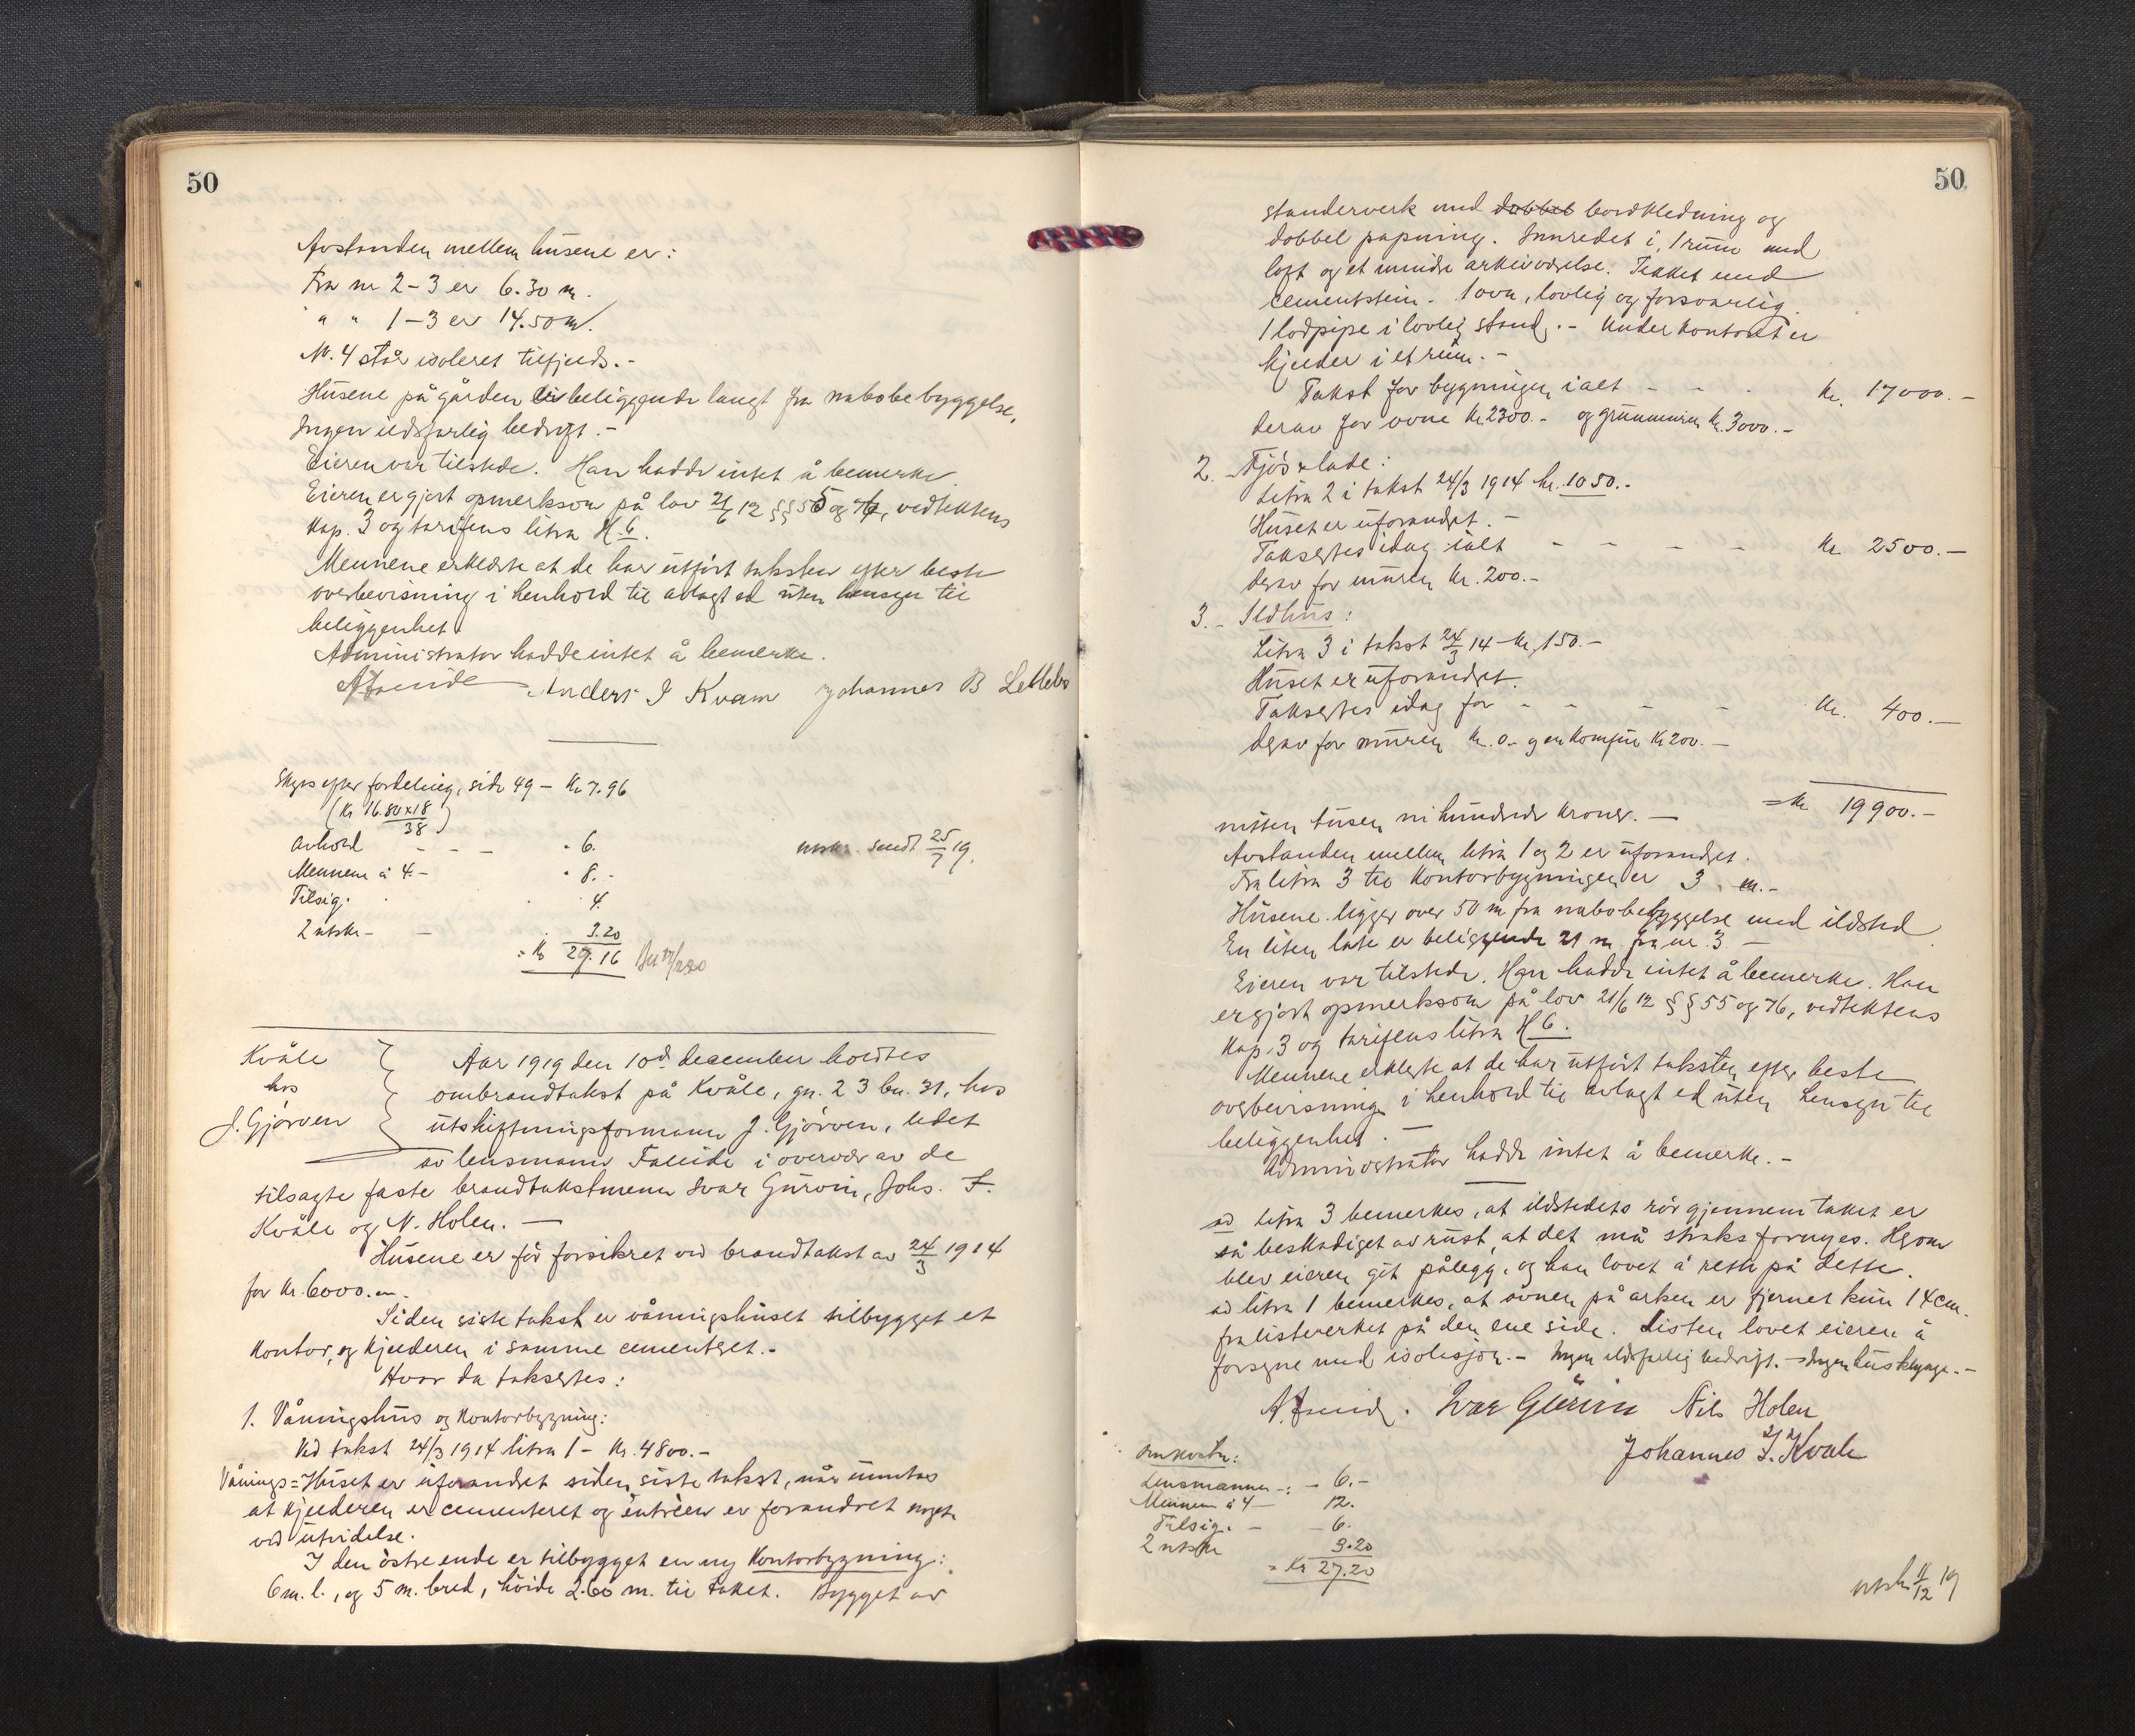 50
Avstanden mellem husene er:
Fra nr 2-3 er 6.30 m.
" " 1-3 er 14.50 m.
Nr. 4 står isoleret tilfjelds.-
Husene på gården er beliggende langt fra nabobebyggelse,
Ingen ildsfarlig bedrift.-
Eieren var tilstede. Han hadde intet å bemerke.
Eieren er gjort opmerksom på lov 21/6 12 §§ 55 og 76, vedtektens
kap. 3 og tarifens litra H 6.
Mennene erklærte at de har utført taksten efter beste
overbevisning i henhold til avlagt ed uten hensyn til
beliggenhet.
Administrator hadde intet å bemerke.
Anders I Kvam Johannes B
Skyss efter fordeling, side 49 - Kr. 7.96
(Kr 16.80 x 18
38)
avhold - - - " 6.
Mennene à 4.- " 8.-
Tilsig. 4.
2 utskr.- - 3.20
= Kr 29.16
sendt 25/7 19.
Kvåle
hos
J. Gjørven
Aar 1919 den 10de december holdtes
ombrandtakst på Kvåle, gn. 23 bn. 31, hos
utskiftningsformann J. Gjørven, ledet
av lensmann Faleide i overvær av de
tilsagte faste brandtakstmenn Ivar Gurvin, Johs. I.
Kvåle og N. Holen. -
Husene er før forsikret ved brandtakst av 24/3 1914
for kr. 6000.-
Siden siste takst er våningshuset tilbygget et
kontor, og kjelderen i samme cementert.-
Hvor da taksertes:
1. Våningshus og kontorbygning:
Ved takst 24/3 1914 litra 1 - Kr. 4800.-
Vånings=Huset er uforandret siden siste takst, når unntas
at kjelderen er cementeret og entréen er forandret noget
ved utvidelse.
I den østre ende er tilbygget en ny kontorbygning:
6 m. l., og 5 m. bred, høide 2.60 m. til taket. Bygget av
50
standerverk med dobbel bordkledning og
dobbel papning. Innredet i 1 rum med
loft og et mindre arkivværelse. Tekket med
cementstein. 1 ovn, lovlig og forsvarlig.
1 lodpipe i lovlig stand.- Under kontoret er
kjelder i et rum.-
Takst for bygningen ialt - - - Kr. 17000.-
derav for ovne kr. 2300.- og grunnmuren kr. 3000.-
2. Fjøs m lade:
Litra 2 i takst 24/3 1914 kr. 1050.-
Huset er uforandret.-
Taksertes idag ialt - - - - Kr. 2500.-
derav for muren kr. 200.-
3.- Ildhus:
Litra 3 i takst 24/3 14 - kr. 150.-
Huset er uforandret.
Taksertes idag for - - - - Kr. 400.-
derav for muren kr. 0.- og en komfur kr 200.-
= Kr 19900.-
nitten tusen ni hundrede kroner.-
Avstanden mellem litra 1 og 2 er uforandret.
Fra litra 3 til kontorbygningen er 3 m.-
Husene ligger over 50 m fra nabobebyggelse med ildsted
En liten løe er beliggende 21 m. fra nr. 3 -
Eieren var tilstede. Han hadde intet å bemerke. Han
er gjort opmerksom på lov 21/6 12 §§ 55 og 76, vedtektens
kap. 3 og tarifens litra H 6.
Mennene erklerte at de har utført taksten efter beste
overbevisning i henhold til avlagt ed uten hensyn til
beliggenhet.-
Administrator hadde intet å bemerke.-
ad litra 3 bemerkes, at ildstedets rør gjennem taket er
så beskadiget av rust, at det må straks fornyes. Herom
blev eieren git pålegg, og han lovet å rette på dette.
ad litra 1 bemerkes, at ovnen på arken er fjernet kun 14 cm.
fra listverket på den ene side. Listen lovet eieren å
forsyne med isolasjon.- Ingen ildsfarlig bedrift.- Ingen husklynge.-
Ivar Gurvin Nils Holen
Johannes I. Kvåle
Omkostn:
Lensmannen -: - 6.-
Mennene à 4 - 12.
Tilsig. - - 6.
2 utskr 3.20
= Kr 27.20
utskr. 11/12 19